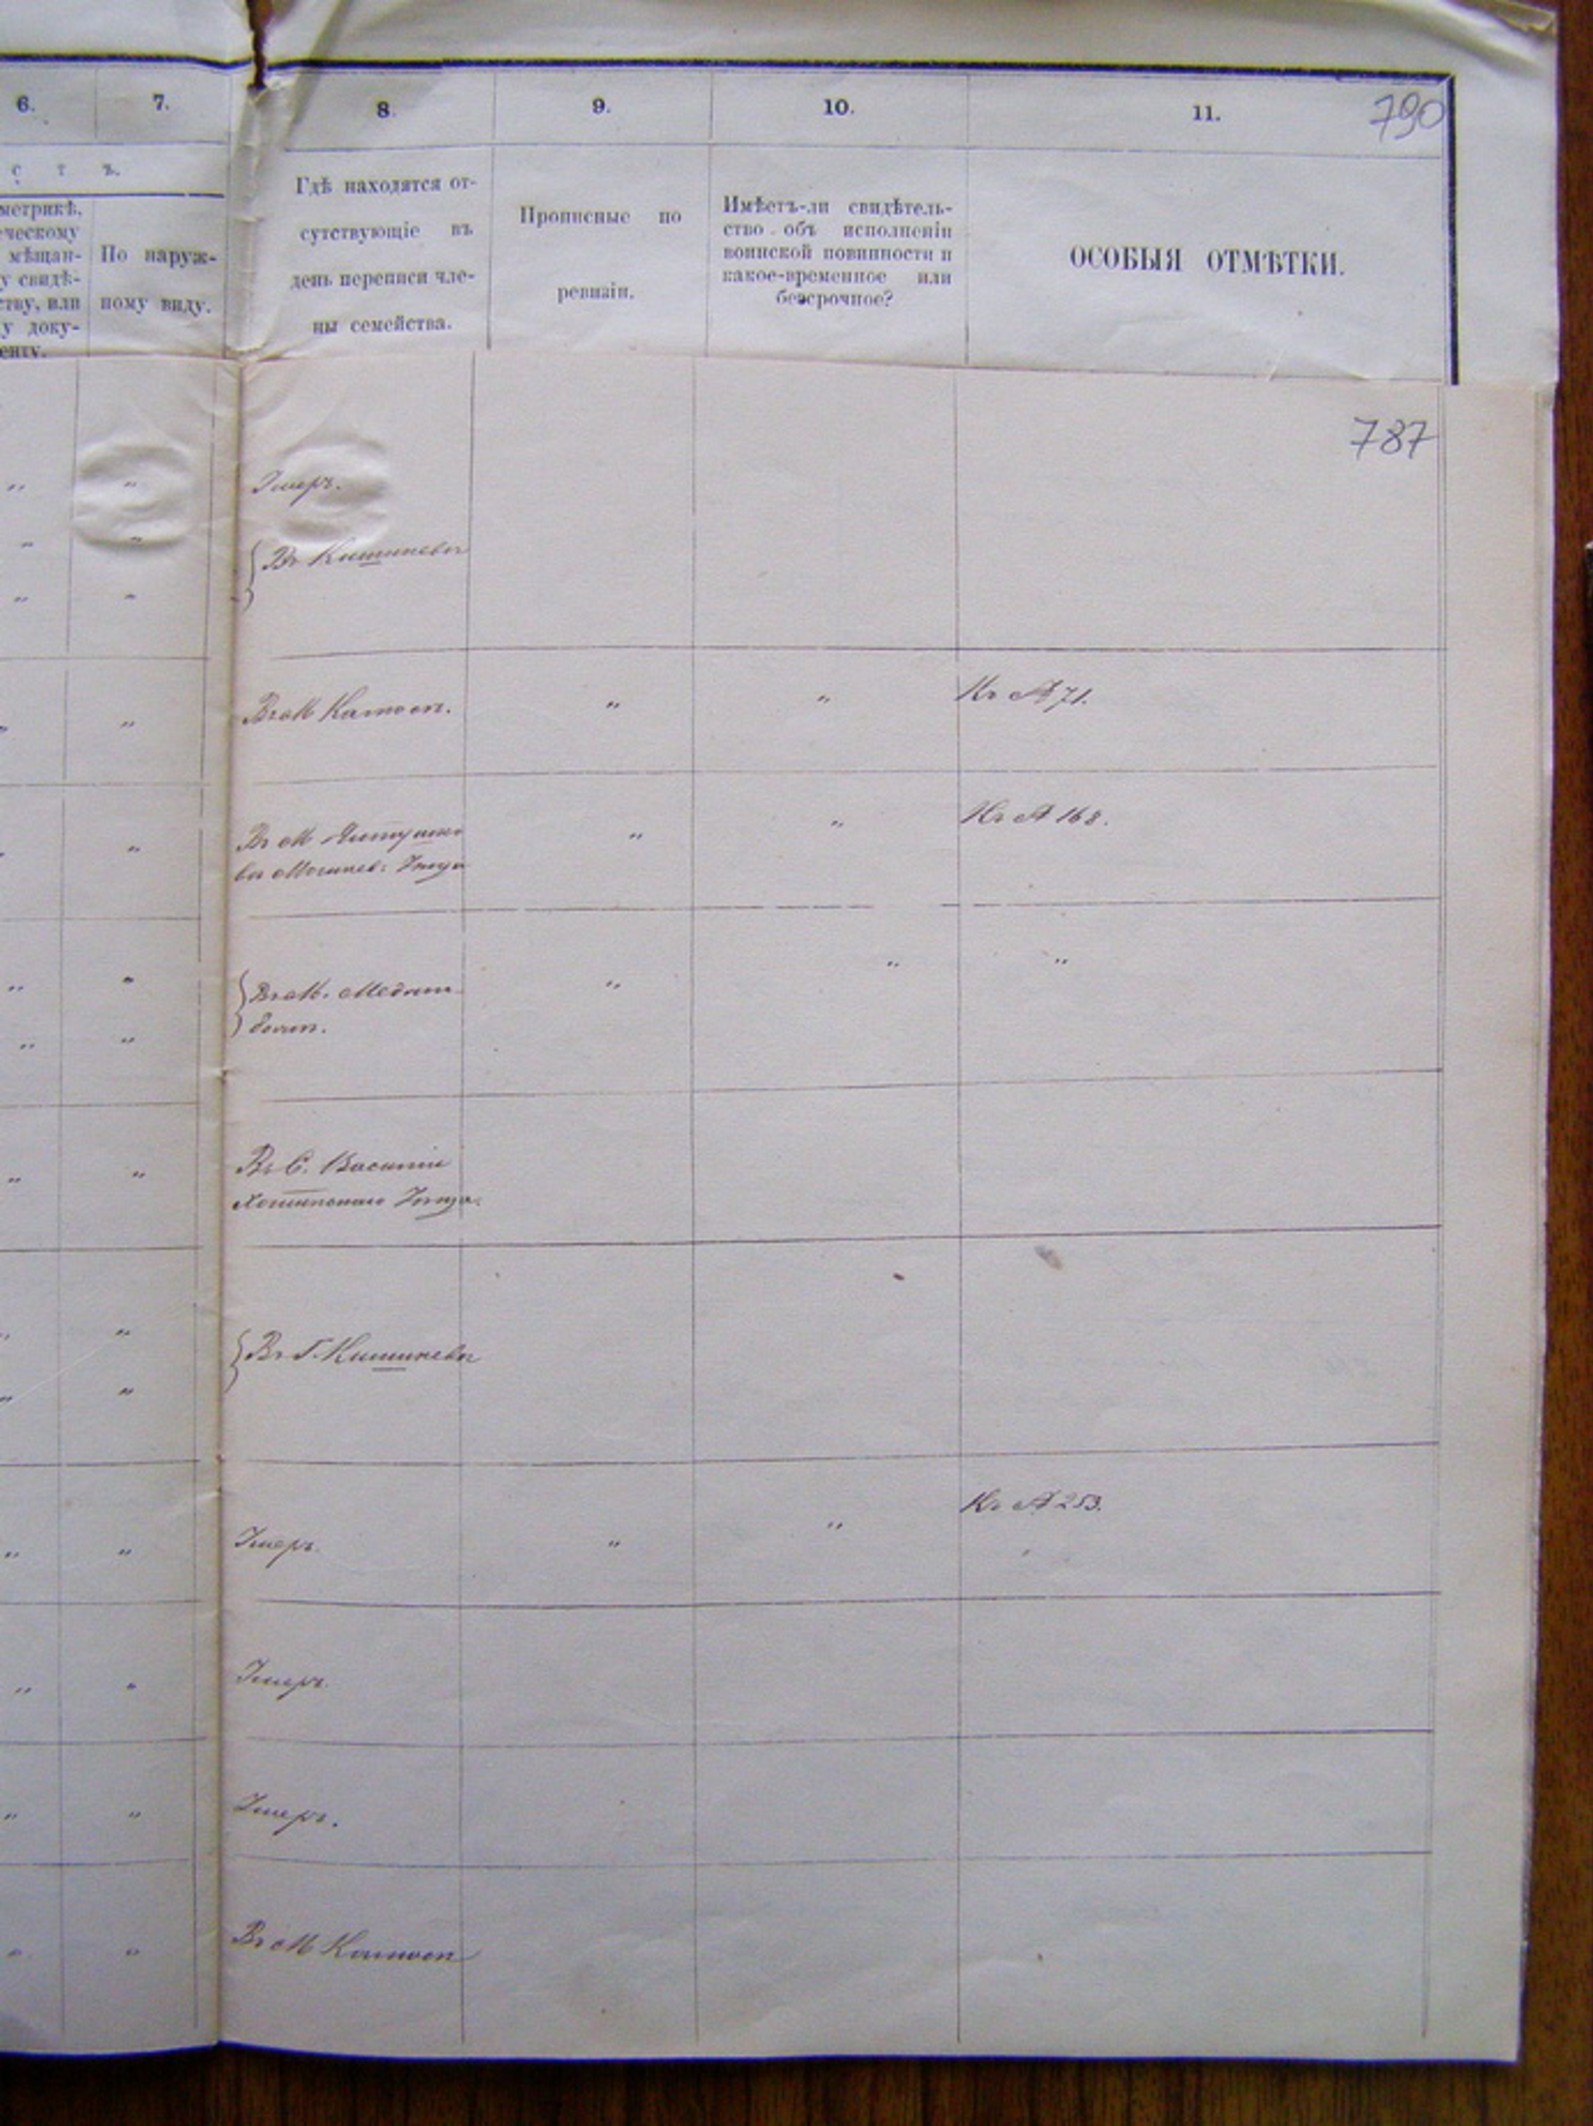 790
6.
7.
8.
9.
10.
11.
с т ъ.
метрикѣ,
ческому
мѣщан-
у свидѣ-
ству, или
у доку-
енту.
По наруж-
ному виду.
Гдѣ находятся от-
сутствующіе въ
день переписи чле-
ны семейства.
Прописные по
ревизіи.
Имѣетъ-ли свидѣтель-
ство объ исполненіи
воинской повинности и
какое-временное или
безсрочное?
ОСОБЫЯ ОТМѢТКИ.
787
„ „ Умеръ.
„ „ Въ Кишиневѣ
„ „
„ „ Въ М. „ „ Къ № 71.
„ „ Въ М „ „ Къ № 168.
въ Могилев: Уезда
„ „ Въ М. „ „ „
„ „
„ „ Въ С.
Хотинскаго Уезда.
„ „ Въ Г. Кишиневѣ
„ „
„ „ Умеръ. „ „ Къ № 253.
„ „ Умеръ.
„ „ Умеръ.
„ „ Въ М